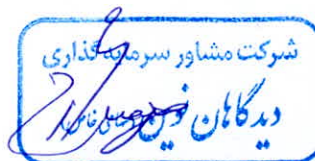 شرکت مشاور سرمایه‌گذاری
دیدگاهان نوین